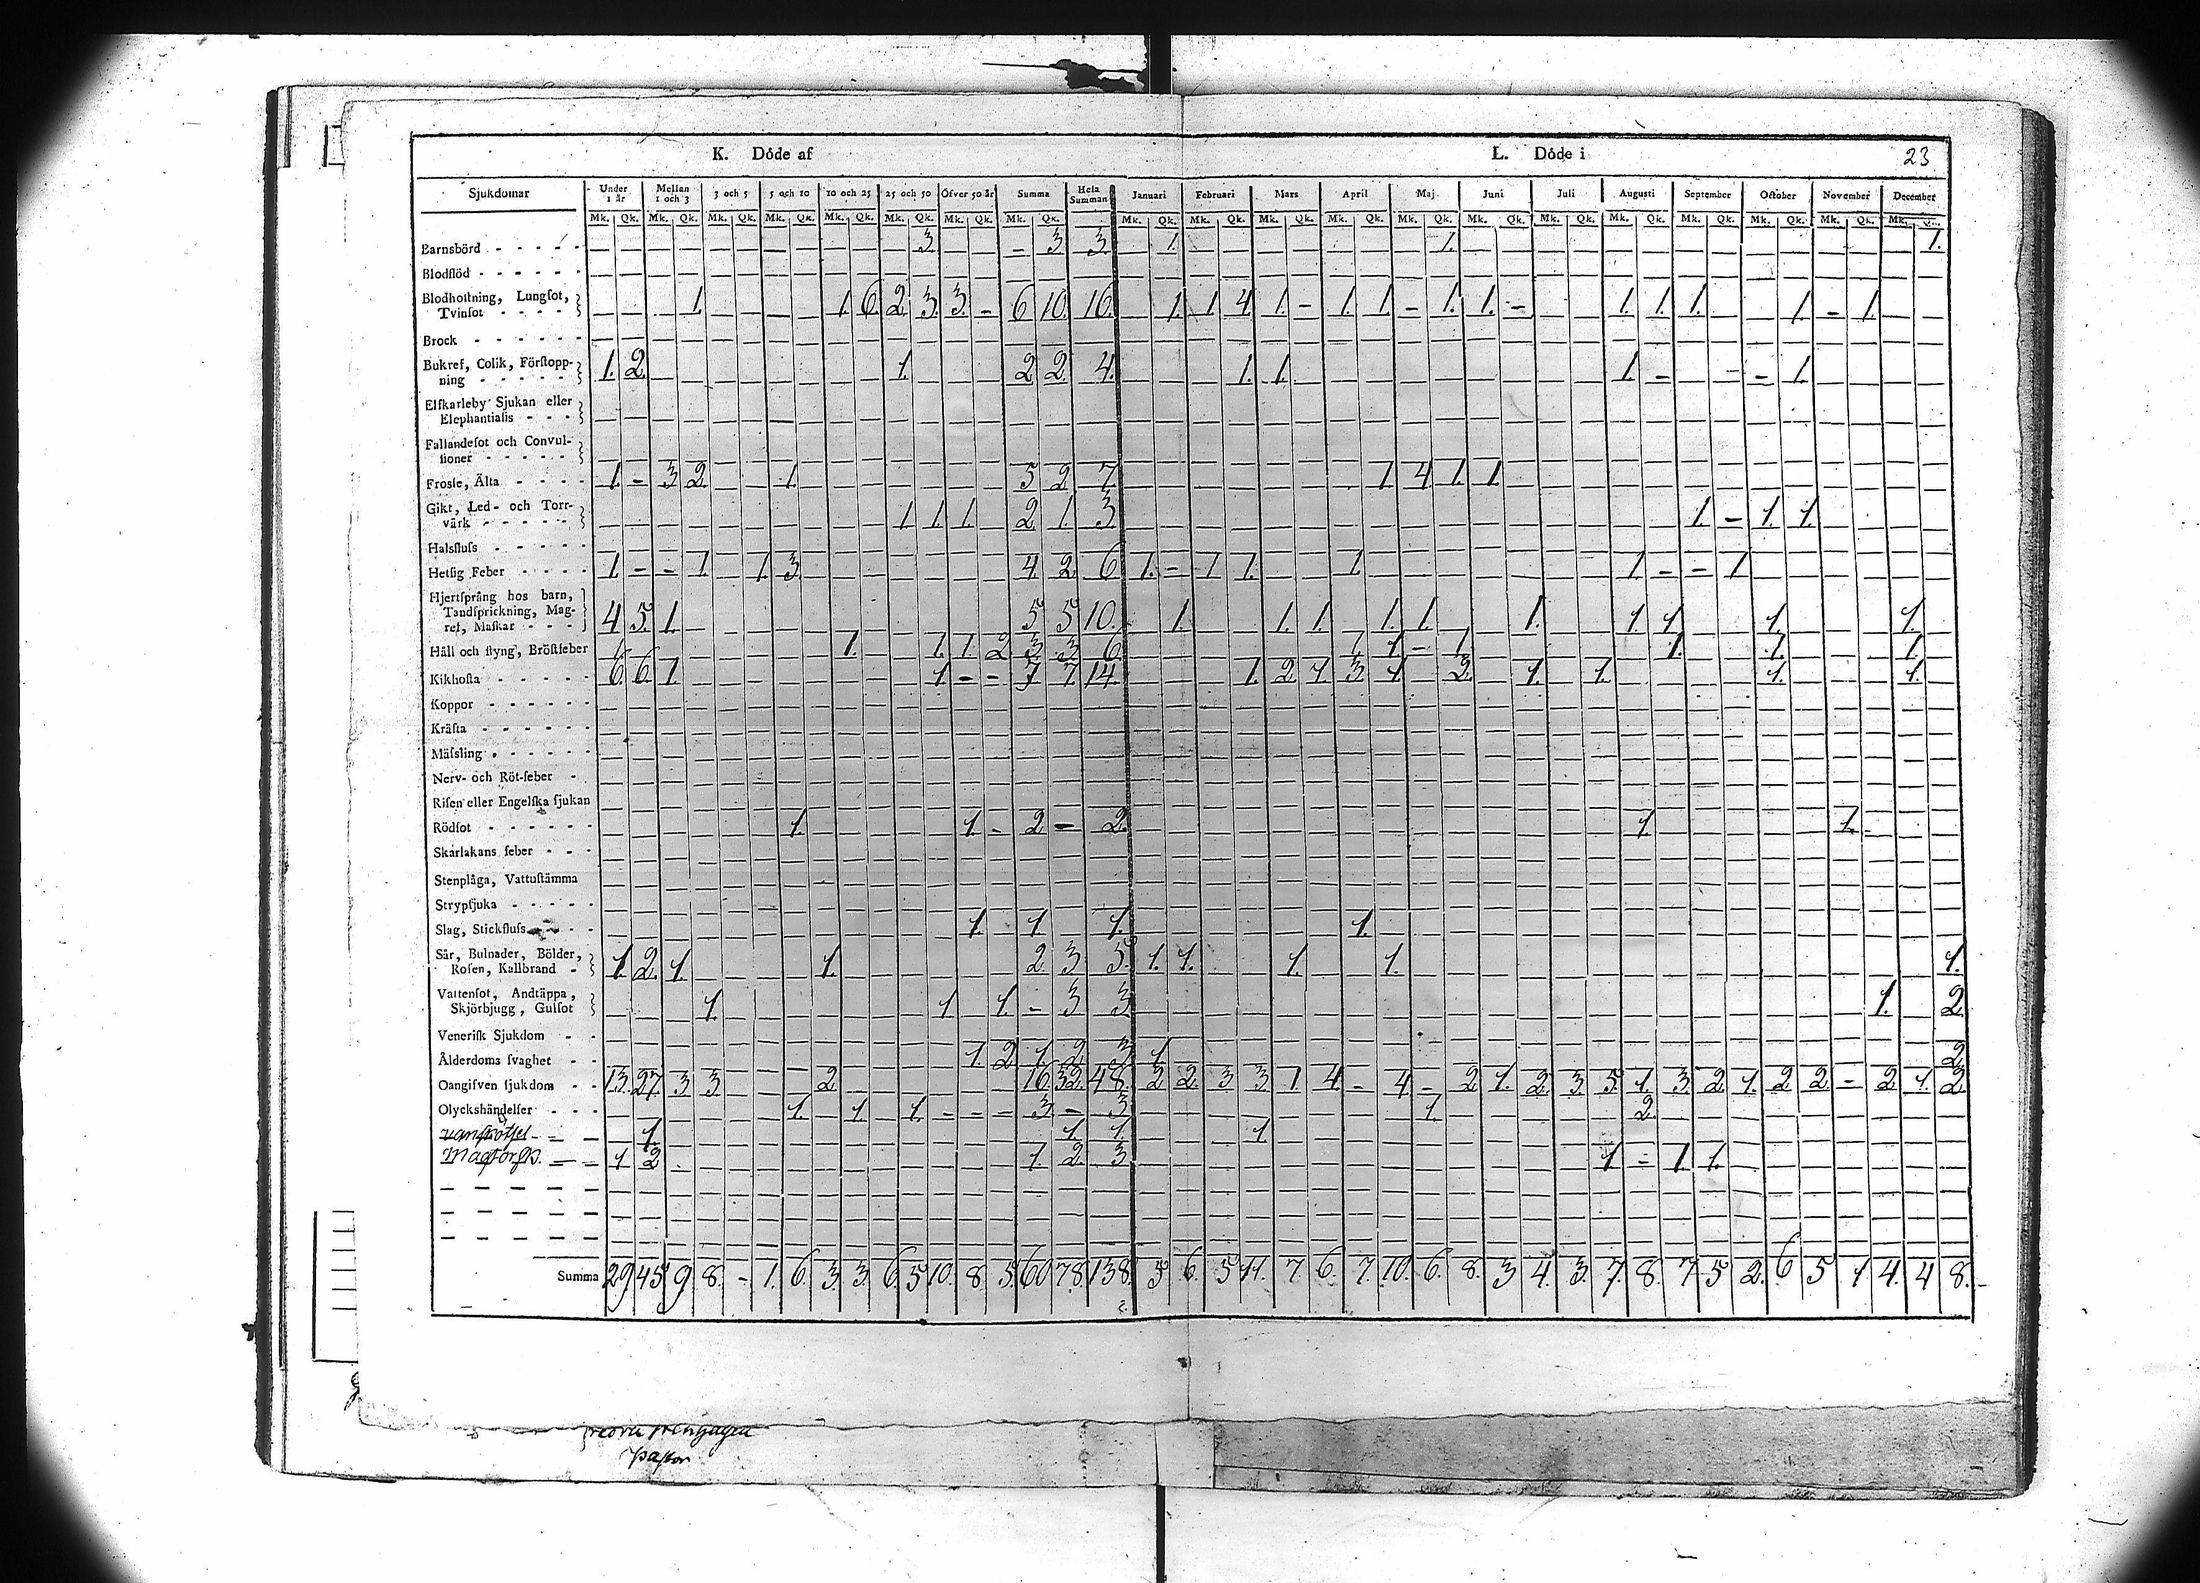 K. Döde af
Ł. Döde i
23
Sjukdomar Under 1 år Mellan 1 och 3 3 och 5 5 och 10 10 och 25 25 och 50 Öfver 50 år Summa Hela Summan Januari Februari Mars April Maj Juni Juli Augusti September October November December
Mk. Qk. Mk. Qk. Mk. Qk. Mk. Qk. Mk. Qk. Mk. Qk. Mk. Qk. Mk. Qk. Mk. Qk. Mk. Qk. Mk. Qk. Mk. Qk. Mk. Qk. Mk. Qk. Mk. Qk. Mk. Qk. Mk. Qk. Mk. Qk. Mk. Qk. Mk.
Barnsbörd 3 3 3. 1. 1. 1.
Blodflöd
Blodhoſtning, Lungſot,
Tvinſot 1. 1. 6. 2. 3. 3. - 6 10. 16. 1. 1 4 1. - 1. 1. - 1. 1. - 1. 1. 1. 1. - 1.
Brock
Bukref, Colik, Förſtopp-
ning 1. 2. 1. 2 2. 4. 1. 1. 1. - - 1.
Elſkarleby Sjukan eller
Elephantiaſis
Fallandeſot och Convul-
ſioner
Frosſe, Älta 1. - 3 2. 1. 5 2. 7. 1. 4 1. 1.
Gikt, Led- och Torr-
värk 1 1. 1. 2 1. 3 1. - 1. 1.
Halsfluſs
Hetſig Feber 1. - - 1. 1. 3. 4. 2. 6. 1. - 1 1. 1 1. - - 1
Hjertſprång hos barn,
Tandſprickning, Mag-
ref, Maſkar 4 5. 1. 5 5 10. 1. 1. 1. 1. 1. 1. 1. 1. 1. 1.
Håll och ſtyng, Bröſtfeber 1. 1. 1. 2 3 3 6. 1. 1. - 1 1. 1 1
Kikhoſta 6. 6. 1. 1. - - 7 7. 14. 1. 2 1. 3 1. 2. 1. 1. 1. 1.
Koppor
Kräfta
Mäſsling
Nerv- och Röt-feber
Riſen eller Engelſka ſjukan
Rödſot 1. 1. - 2 - 2. 1. 1.
Skarlakans feber
Stenplåga, Vattuſtämma
Strypſjuka
Slag, Stickfluſs 1. 1. 1. 1.
Sår, Bulnader, Bölder,
Roſen, Kallbrand 1. 2. 1. 1. 2. 3 5. 1. 1. 1. 1. 1.
Vattenſot, Andtäppa,
Skjörbjugg, Gulſot 1. 1 1. - 3 3 1. 2.
Veneriſk Sjukdom
Ålderdoms ſvaghet 1. 2 1. 2. 3 1 2
Oangifven ſjukdom 13. 27. 3 3. 2 16 32. 48. 2 2. 3 3 1 4. - 4. - 2 1. 2. 3 5. 1. 3. 2 1. 2 2. - 2 1. 2.
Olyckshändelſer 1. 1. 1. - - - 3. - 3 1. 2.
1. 1. 1. 1
1 2 1. 2. 3 1 - 1. 1.
Summa 29 45 9. 8. - 1. 6. 3. 3. 6. 5 10. 8 5. 60 78. 138. 5 6. 5 11. 7 6. 7. 10. 6. 8. 3 4. 3. 7. 8. 7 5 2. 6 5 1 4. 4 8.
Paſtor